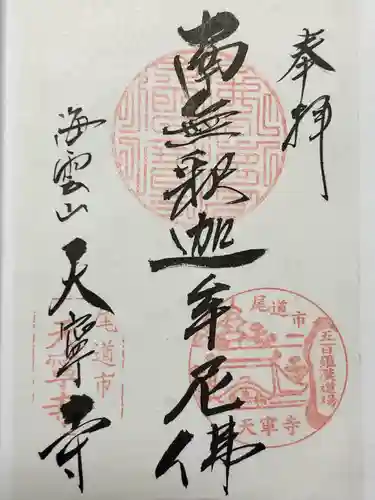 奉拝
南無釈迦牟尼佛
海雲山
天寧寺
尾道市
五百羅漢道場
天寧寺
尾道市
天寧寺